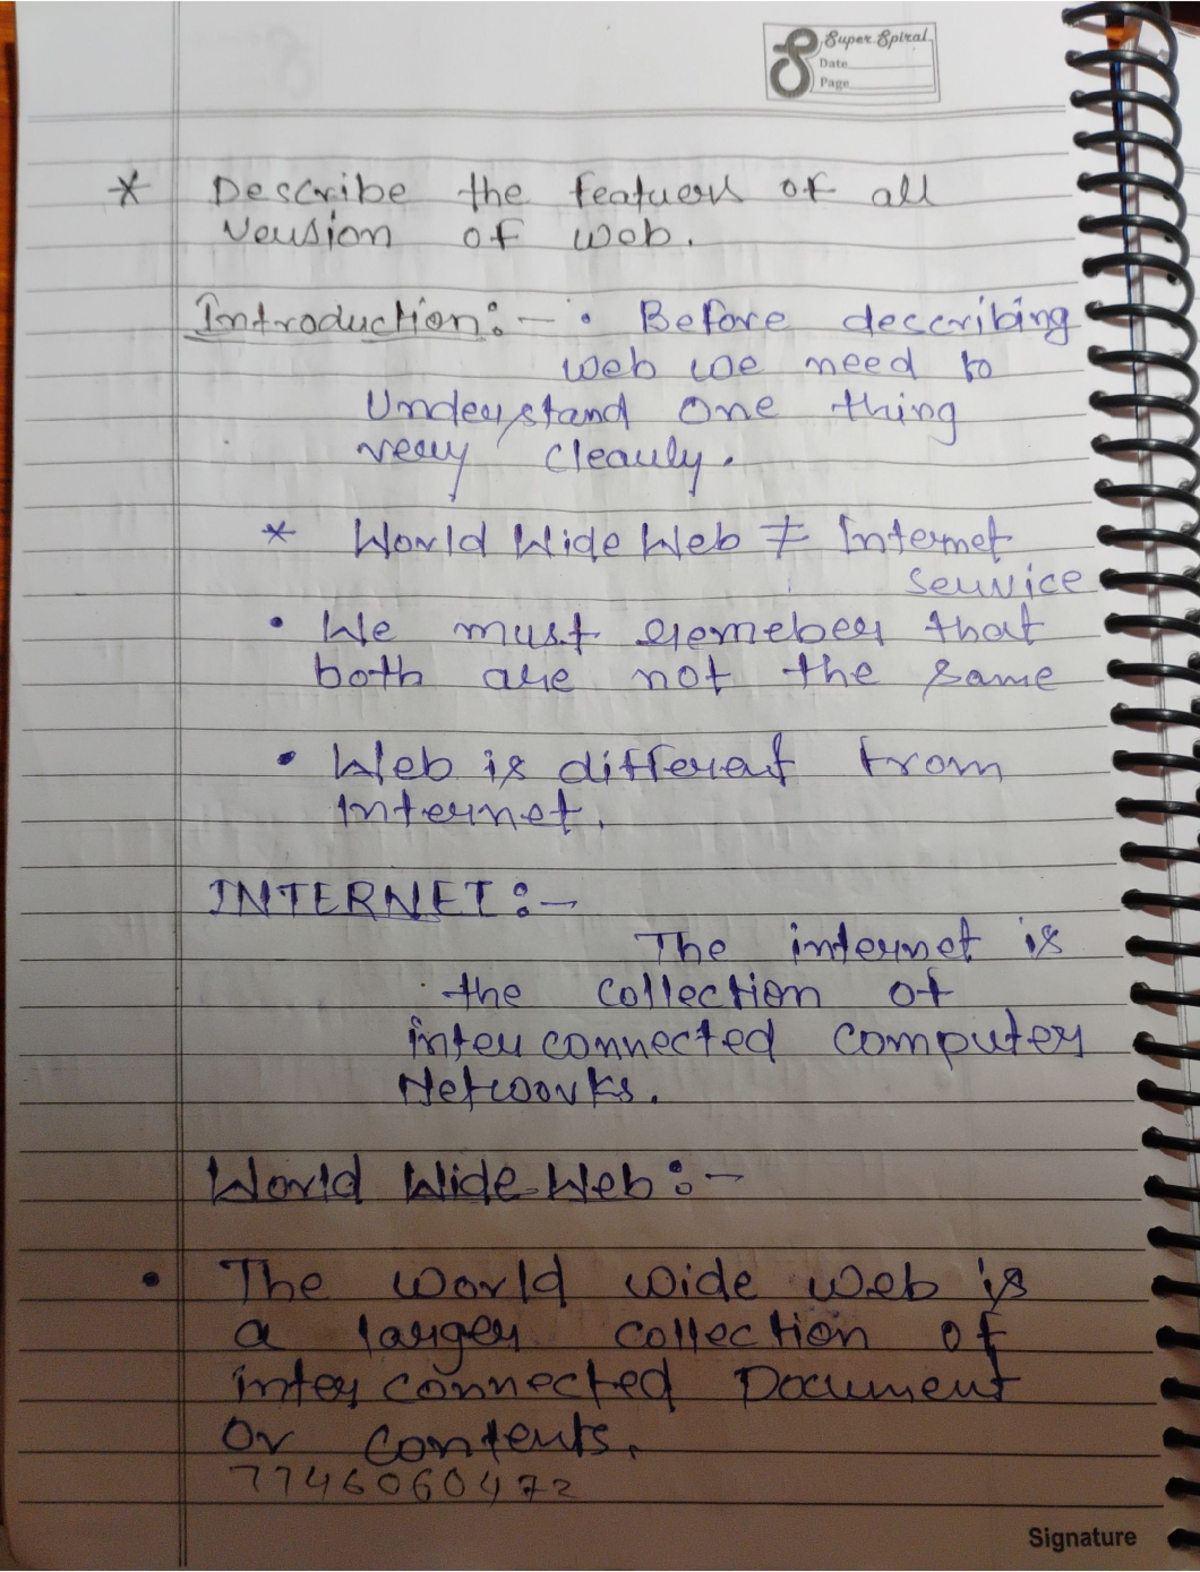 Super Spiral
Date
Page
* Describe the featuers of all
version of web.
Introduction:- • Before describing
web we need to
Understand one thing
very clearly.
* World Wide Web ≠ Internet
service
• We must remeber that
both are not the same
• Web is different from
internet.
INTERNET:-
The internet is
the collection of
inter connected computer
Networks.
World Wide Web:-
• The world wide web is
a larger collection of
inter connected Document
or contents.
7746060472
Signature